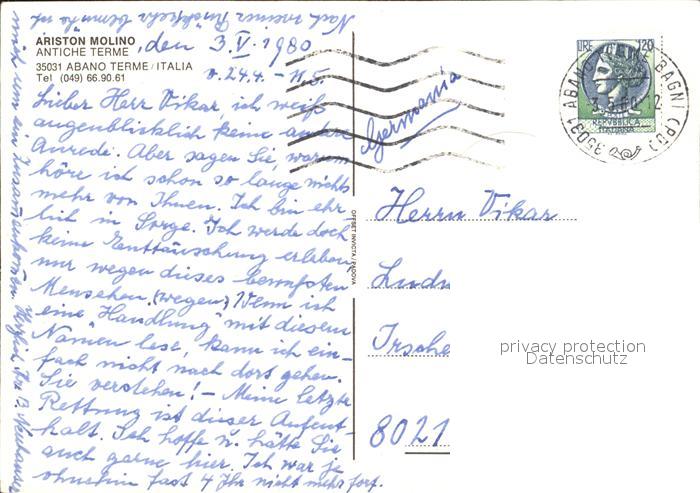 ARISTON MOLINO
ANTICHE TERME
35031 ABANO TERME / ITALIA
Tel (049) 66.90.61
den 3.V. 1980
v. 24.4. – 11.5.
Lieber Herr Vikar, ich weiß
augenblicklich keine andere
Anrede. Aber sagen Sie, warum
höre ich schon so lange nichts
mehr von Ihnen. Ich bin ehr-
lich in Sorge. Ich werde doch
keine Enttäuschung erleben,
nur wegen dieses bewußten
Menschen. (wegen) Wenn ich
eine "Handlung" mit diesem
Namen lese, kann ich ein-
fach nicht nach dort gehen.
Sie verstehen! – Meine letzte
Rettung ist dieser Aufent-
halt. Ich hoffe u. hätte Sie
auch gerne hier. Ich war ja
ohnehin fast 4 Jhr nicht mehr fort.
Nach meiner Rückkehr bemühe ich
mich um ein Zusammenkommen. Herzlich Ihre B. Neuhauser
OFFSET INVICTA / PADOVA
Germania
LIRE 120
REPUBBLICA
ITALIANA
35031 ABANO TERME BAGNI (PD)
3.5.80.12
Herrn Vikar
Ludw
Irsche
8021
privacy protection
Datenschutz